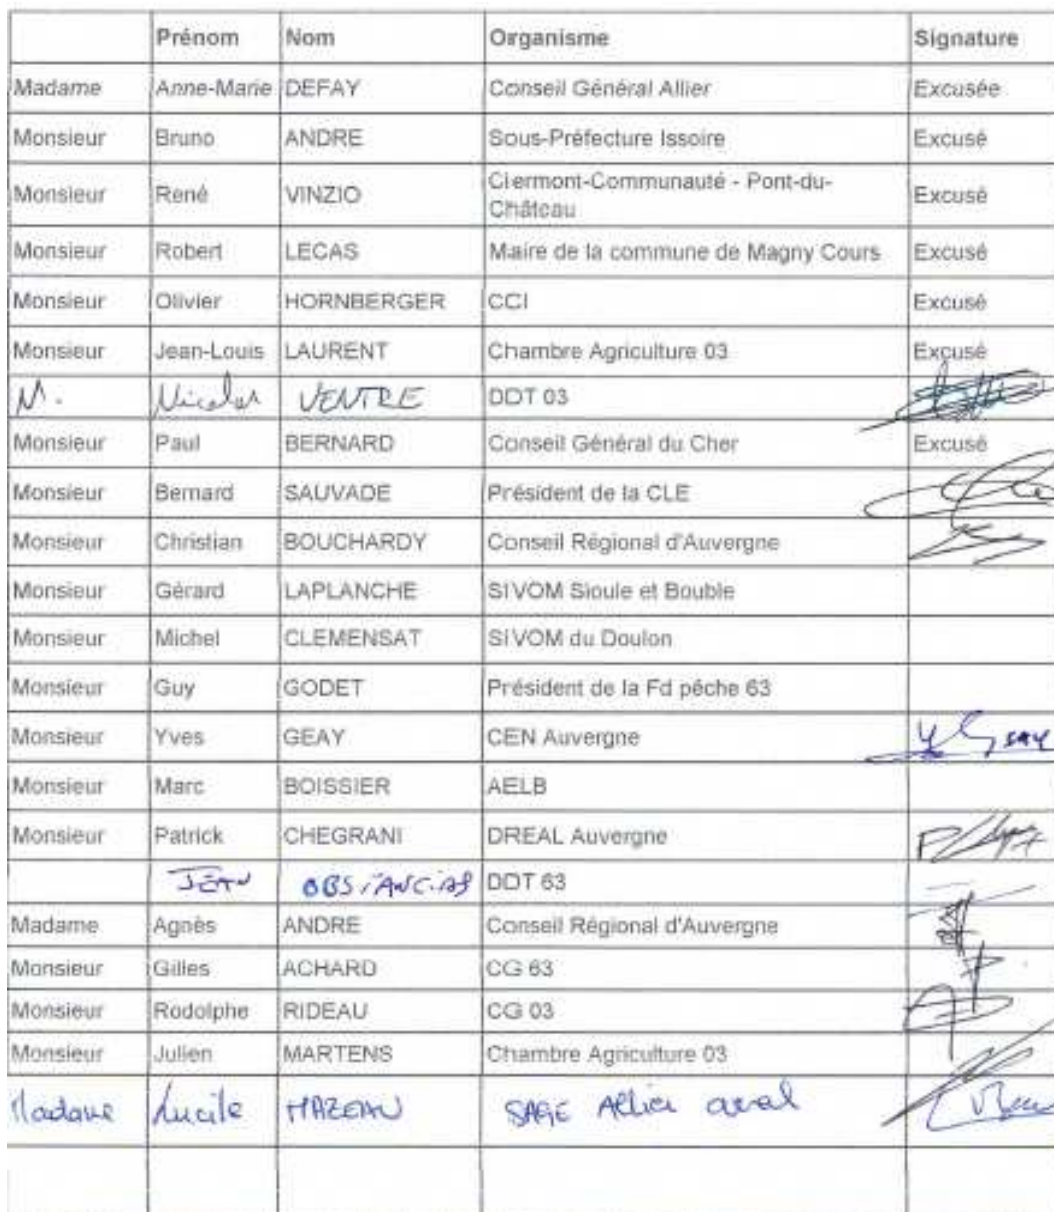 Prénom Nom Organisme Signature
Madame Anne-Marie DEFAY Conseil Général Allier Excusée
Monsieur Bruno ANDRE Sous-Préfecture Issoire Excusé
Monsieur René VINZIO Clermont-Communauté - Pont-du-
Château Excusé
Monsieur Robert LECAS Maire de la commune de Magny Cours Excusé
Monsieur Olivier HORNBERGER CCI Excusé
Monsieur Jean-Louis LAURENT Chambre Agriculture 03 Excusé
M. Nicolas VENTRE DDT 03
Monsieur Paul BERNARD Conseil Général du Cher Excusé
Monsieur Bernard SAUVADE Président de la CLE
Monsieur Christian BOUCHARDY Conseil Régional d'Auvergne
Monsieur Gérard LAPLANCHE SIVOM Sioule et Bouble
Monsieur Michel CLEMENSAT SIVOM du Doulon
Monsieur Guy GODET Président de la Fd pêche 63
Monsieur Yves GEAY CEN Auvergne
Monsieur Marc BOISSIER AELB
Monsieur Patrick CHEGRANI DREAL Auvergne
JEAN DDT 63
Madame Agnès ANDRE Conseil Régional d'Auvergne
Monsieur Gilles ACHARD CG 63
Monsieur Rodolphe RIDEAU CG 03
Monsieur Julien MARTENS Chambre Agriculture 03
Madame Lucile MAZEAU SAGE Allier aval